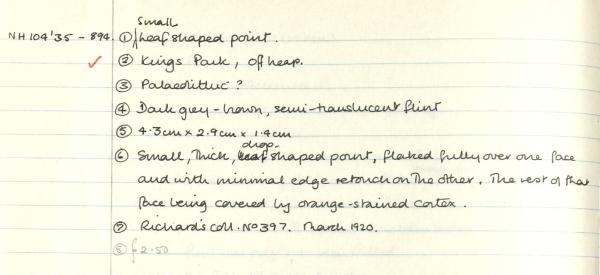 small
NH 104'35 - 894. ① leaf shaped point.
✓ ② Kings Park, off heap.
③ Palaeolithic?
④ Dark grey-brown, semi-translucent flint
⑤ 4.3cm x 2.9cm x 1.4cm
drop
⑥ Small, Thick, leaf shaped point, flaked fully over one face
and with minimal edge retouch on the other. The rest of that
face being covered by orange-stained cortex.
⑦ Richard's coll. No 397. March 1920.
⑧ £2.50